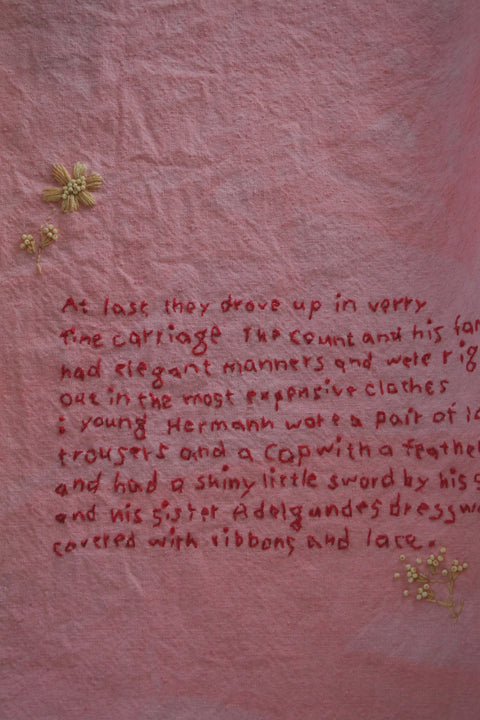 At last they drove up in verry
fine carriage The count and his fam
had elegant manners and were rig
out in the most expensive clothes
: young Hermann wore a pair of lo
trousers and a cap with a feather
and had a shiny little sword by his s
and his sister Adelgundes dress wa
covered with ribbons and lace.